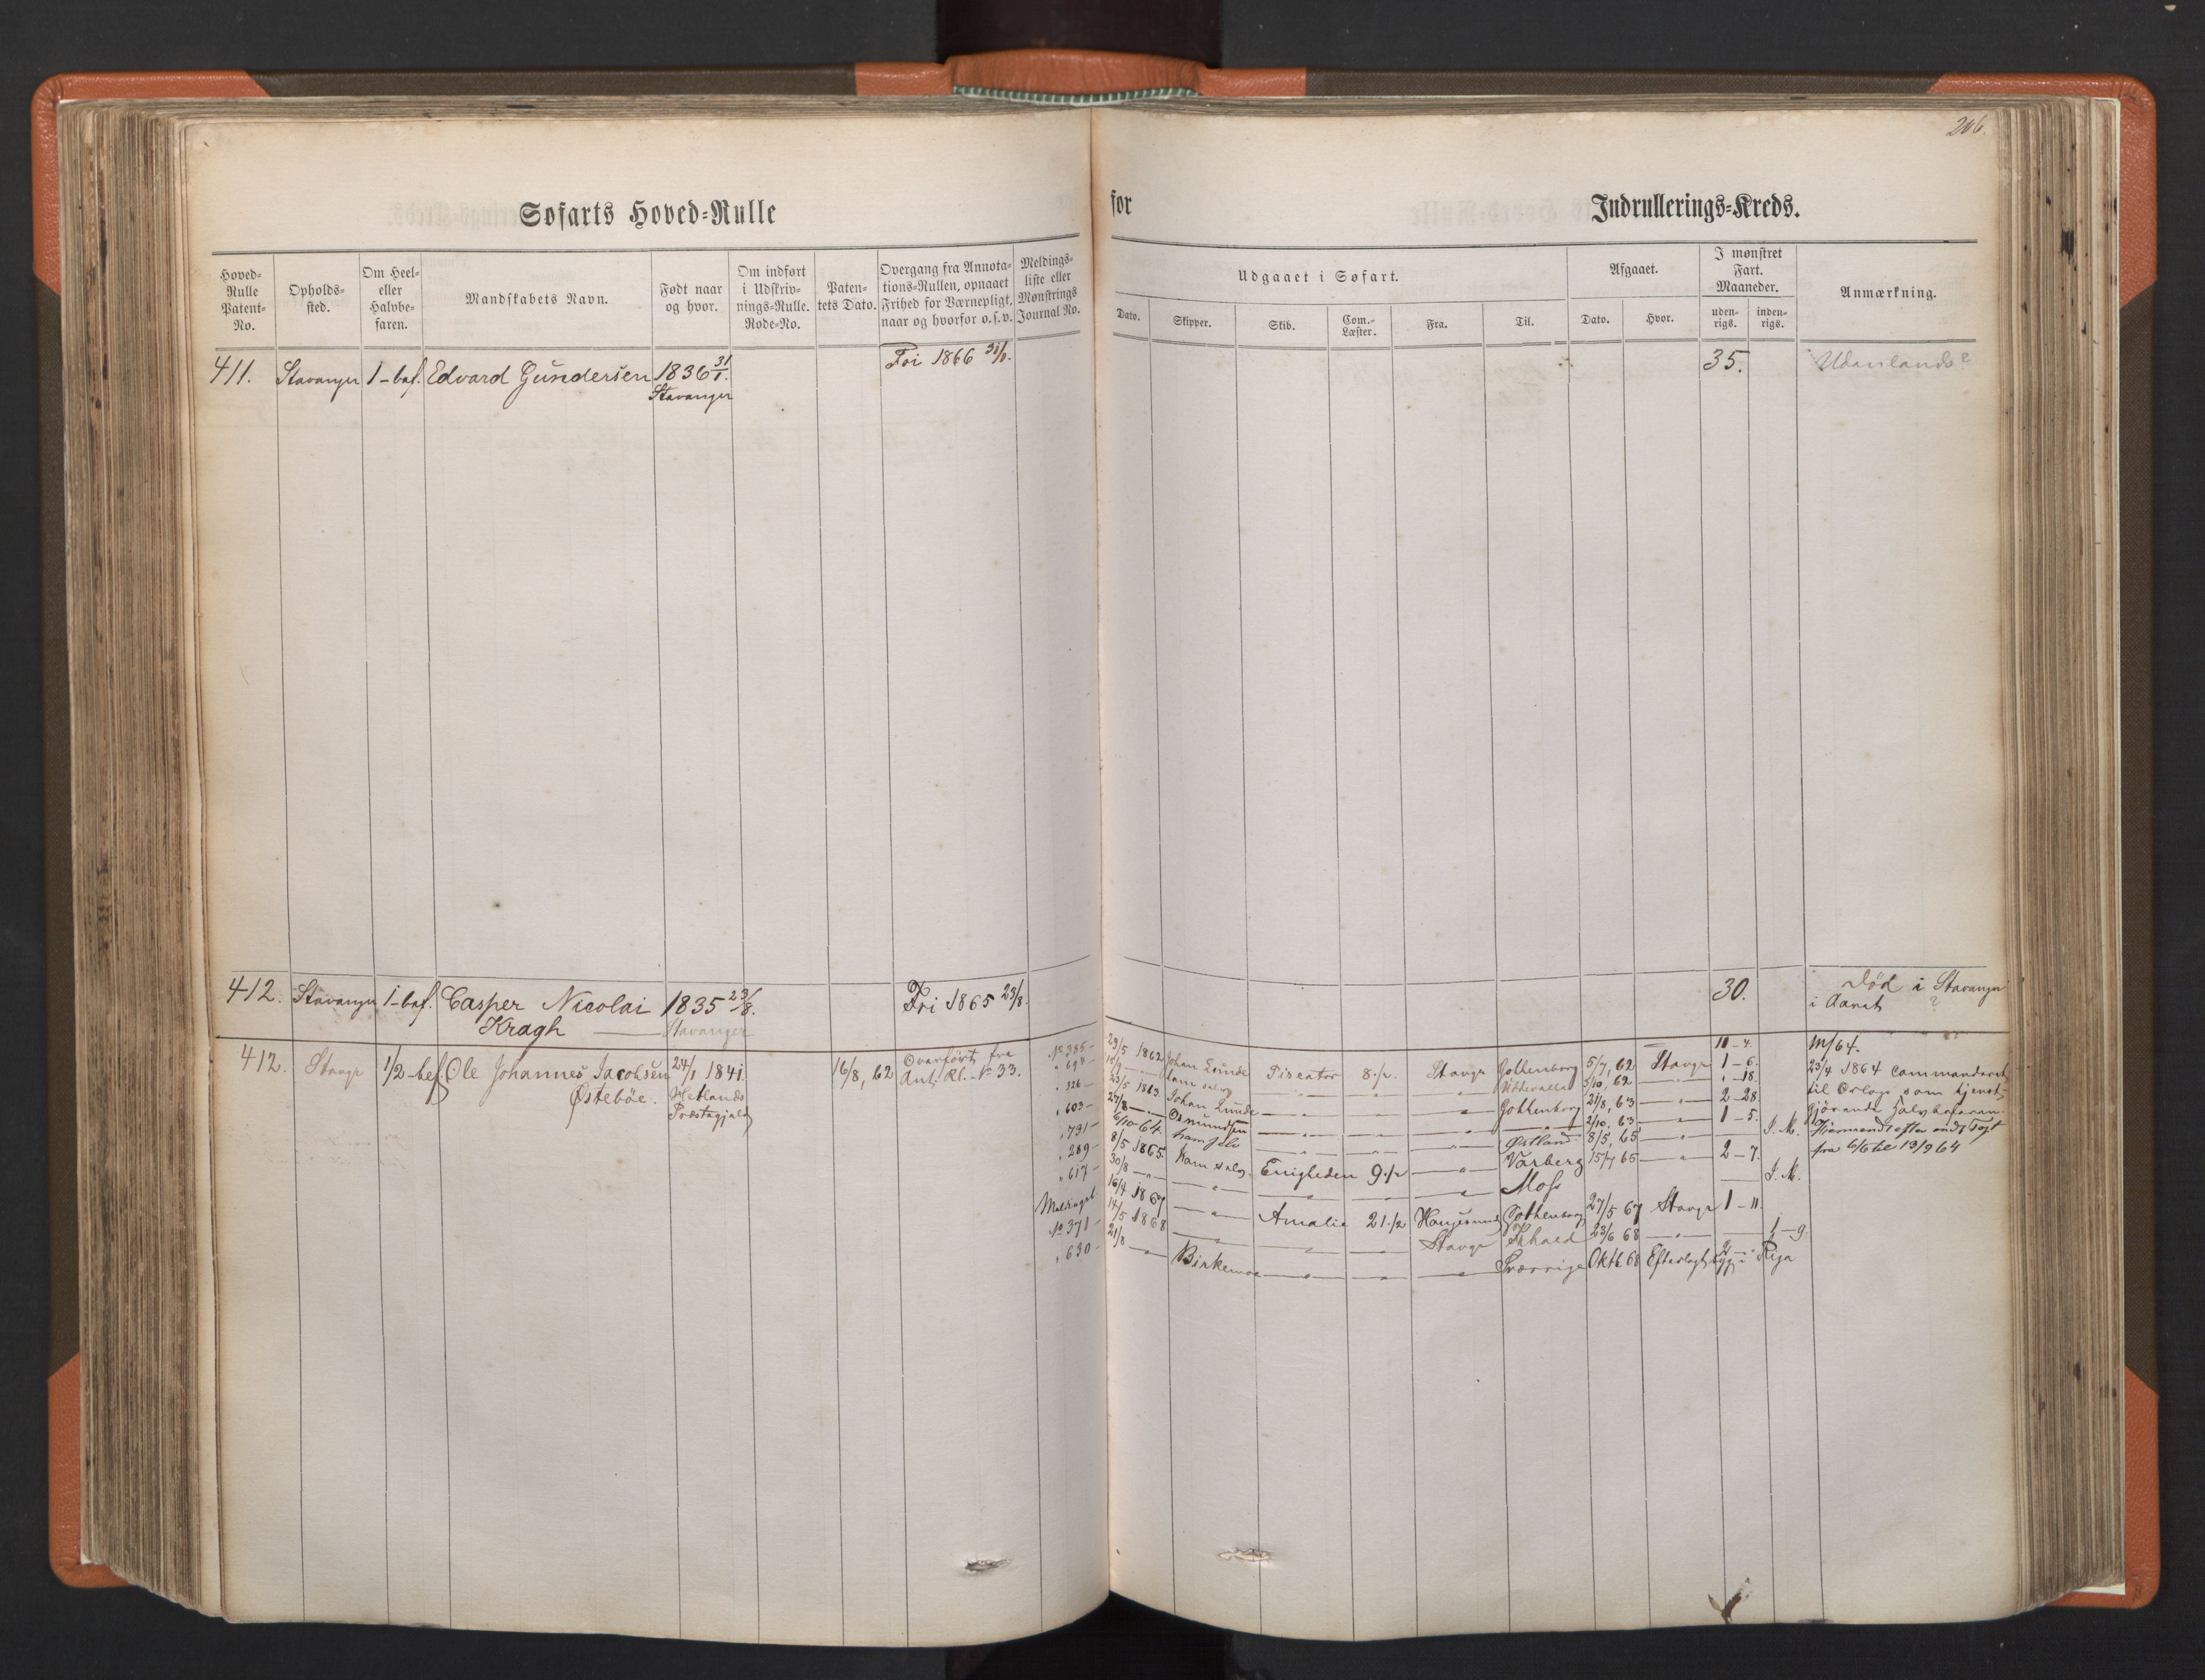 206.
Søfarts Hoved-Rulle
for
Indrullerings-Kreds.
Hoved-Rulle Patent-No.
Opholds-sted.
Om Heel- eller Halvbe-faren.
Mandskabets Navn.
Født naar og hvor.
Om indført i Udskriv-nings-Rulle. Rode-No.
Paten-tets Dato.
Overgang fra Annota-tions-Rullen, opnaaet Frihed for Værnepligt, naar og hvorfor o.s.v.
Meldings-liste eller Mønstrings Journal No.
Udgaaet i Søfart.
Afgaaet.
I mønstret Fart. Maaneder.
Anmærkning.
Dato.
Skipper.
Skib.
Com.-Læster.
Fra.
Til.
Dato.
Hvor.
uden-rigs.
inden-rigs.
411. Stavanger 1-bef. Edvard Gundersen 1836 31/1. Fri 1866 31/1. 35. Udenlands?
Stavanger
412. Stavanger 1-bef. Casper Nicolai 1835 23/8. Fri 1865 23/8. 30. Død i Stavanger
Kragh Stavanger i Aaret ?
412. Stavgr 1/2-bef. Ole Johannes Jacobsen 24/1 1841. 16/8, 62 Overført fra
Østebøe. Hetlands Ant. Rl. No 33.
Præstegjeld
11-4. M/64.
No 385- 29/5 1862 Johan Lunde Piscator 8 1/2 Stavgr Gothenborg 5/7, 62 Stavgr 1-6. 23/4 1864 commanderet
" 698- ham selv Uddevalla 5/10, 62 " 1-18. til Orlogs som tjenst-
" 326- 23/5 1863 Johan Lunde " Gothenborg 21/8, 63 " 2-28. gjørende Halvbefaren.
" 603- 27/8 Osmundsen " 2/10, 63 " 1-5. Hjemsendt efter endt Togt
" 791- 6/10-64 ham selv " Østland 8/5, 65 " I.M. fra 6/6 til 13/9 64
" 289- 8/5 1865 Ham selv Enigheden 9 1/2 " Varberg 15/7 65 " 2-7.
" 617- 30/8 " Moss I.M.
16/4 1867 " Amalie 21 1/2 Haugesund Gothenborg 27/5 67 Stavgr 1-11.
No 371- 14/5 1868 Stavgr 23/6 68 " 1-9.
" 630- 21/8 Birkemoe " Sverrige Oktb. 68 Riga